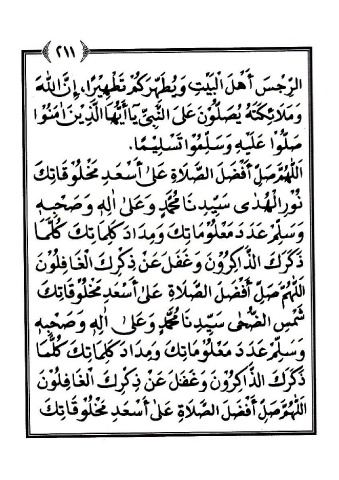 ٢١١
الرِّجْسَ أَهْلَ الْبَيْتِ وَيُطَهِّرَكُمْ تَطْهِيْرًا، إِنَّ اللهَ
وَمَلَائِكَتَهُ يُصَلُّوْنَ عَلَى النَّبِيِّ يَا أَيُّهَا الَّذِيْنَ اٰمَنُوْا
صَلُّوْا عَلَيْهِ وَسَلِّمُوْا تَسْلِيْمًا.
اَللّٰهُمَّ صَلِّ أَفْضَلَ الصَّلَاةِ عَلٰى أَسْعَدِ مَخْلُوْقَاتِكَ
نُوْرِ الْهُدٰى سَيِّدِنَا مُحَمَّدٍ وَعَلٰى اٰلِهٖ وَصَحْبِهٖ
وَسَلِّمْ عَدَدَ مَعْلُوْمَاتِكَ وَمِدَادَ كَلِمَاتِكَ كُلَّمَا
ذَكَرَكَ الذَّاكِرُوْنَ وَغَفَلَ عَنْ ذِكْرِكَ الْغَافِلُوْنَ
اَللّٰهُمَّ صَلِّ أَفْضَلَ الصَّلَاةِ عَلٰى أَسْعَدِ مَخْلُوْقَاتِكَ
شَمْسِ الضُّحٰى سَيِّدِنَا مُحَمَّدٍ وَعَلٰى اٰلِهٖ وَصَحْبِهٖ
وَسَلِّمْ عَدَدَ مَعْلُوْمَاتِكَ وَمِدَادَ كَلِمَاتِكَ كُلَّمَا
ذَكَرَكَ الذَّاكِرُوْنَ وَغَفَلَ عَنْ ذِكْرِكَ الْغَافِلُوْنَ
اَللّٰهُمَّ صَلِّ أَفْضَلَ الصَّلَاةِ عَلٰى أَسْعَدِ مَخْلُوْقَاتِكَ